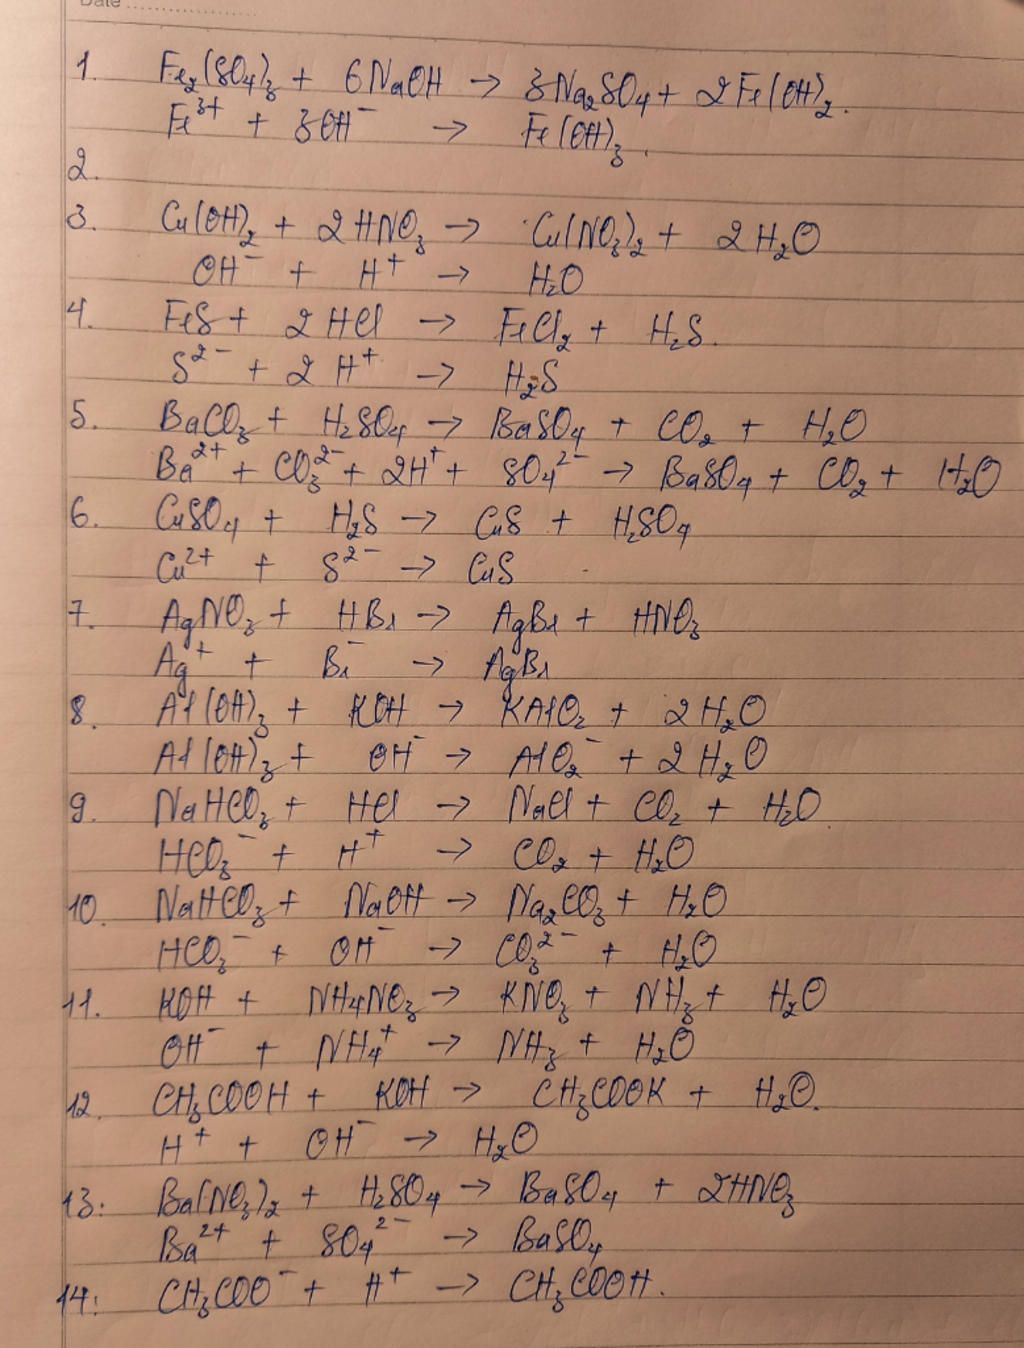 Date ..................
1. Fe₂(SO₄)₃ + 6NaOH → 3Na₂SO₄ + 2Fe(OH)₂.
Fe³⁺ + 3OH⁻ → Fe(OH)₃.
2.
3. Cu(OH)₂ + 2HNO₃ → Cu(NO₃)₂ + 2H₂O
OH⁻ + H⁺ → H₂O
4. FeS + 2HCl → FeCl₂ + H₂S.
S²⁻ + 2H⁺ → H₂S
5. BaCO₃ + H₂SO₄ → BaSO₄ + CO₂ + H₂O
Ba²⁺ + CO₃²⁻ + 2H⁺ + SO₄²⁻ → BaSO₄ + CO₂ + H₂O
6. CuSO₄ + H₂S → CuS + H₂SO₄
Cu²⁺ + S²⁻ → CuS
7. AgNO₃ + HBr → AgBr + HNO₃
Ag⁺ + Br⁻ → AgBr
8. Al(OH)₃ + KOH → KAlO₂ + 2H₂O
Al(OH)₃ + OH⁻ → AlO₂⁻ + 2H₂O
9. NaHCO₃ + HCl → NaCl + CO₂ + H₂O
HCO₃⁻ + H⁺ → CO₂ + H₂O
10. NaHCO₃ + NaOH → Na₂CO₃ + H₂O
HCO₃⁻ + OH⁻ → CO₃²⁻ + H₂O
11. KOH + NH₄NO₃ → KNO₃ + NH₃ + H₂O
OH⁻ + NH₄⁺ → NH₃ + H₂O
12. CH₃COOH + KOH → CH₃COOK + H₂O.
H⁺ + OH⁻ → H₂O
13: Ba(NO₃)₂ + H₂SO₄ → BaSO₄ + 2HNO₃
Ba²⁺ + SO₄²⁻ → BaSO₄
14: CH₃COO⁻ + H⁺ → CH₃COOH.